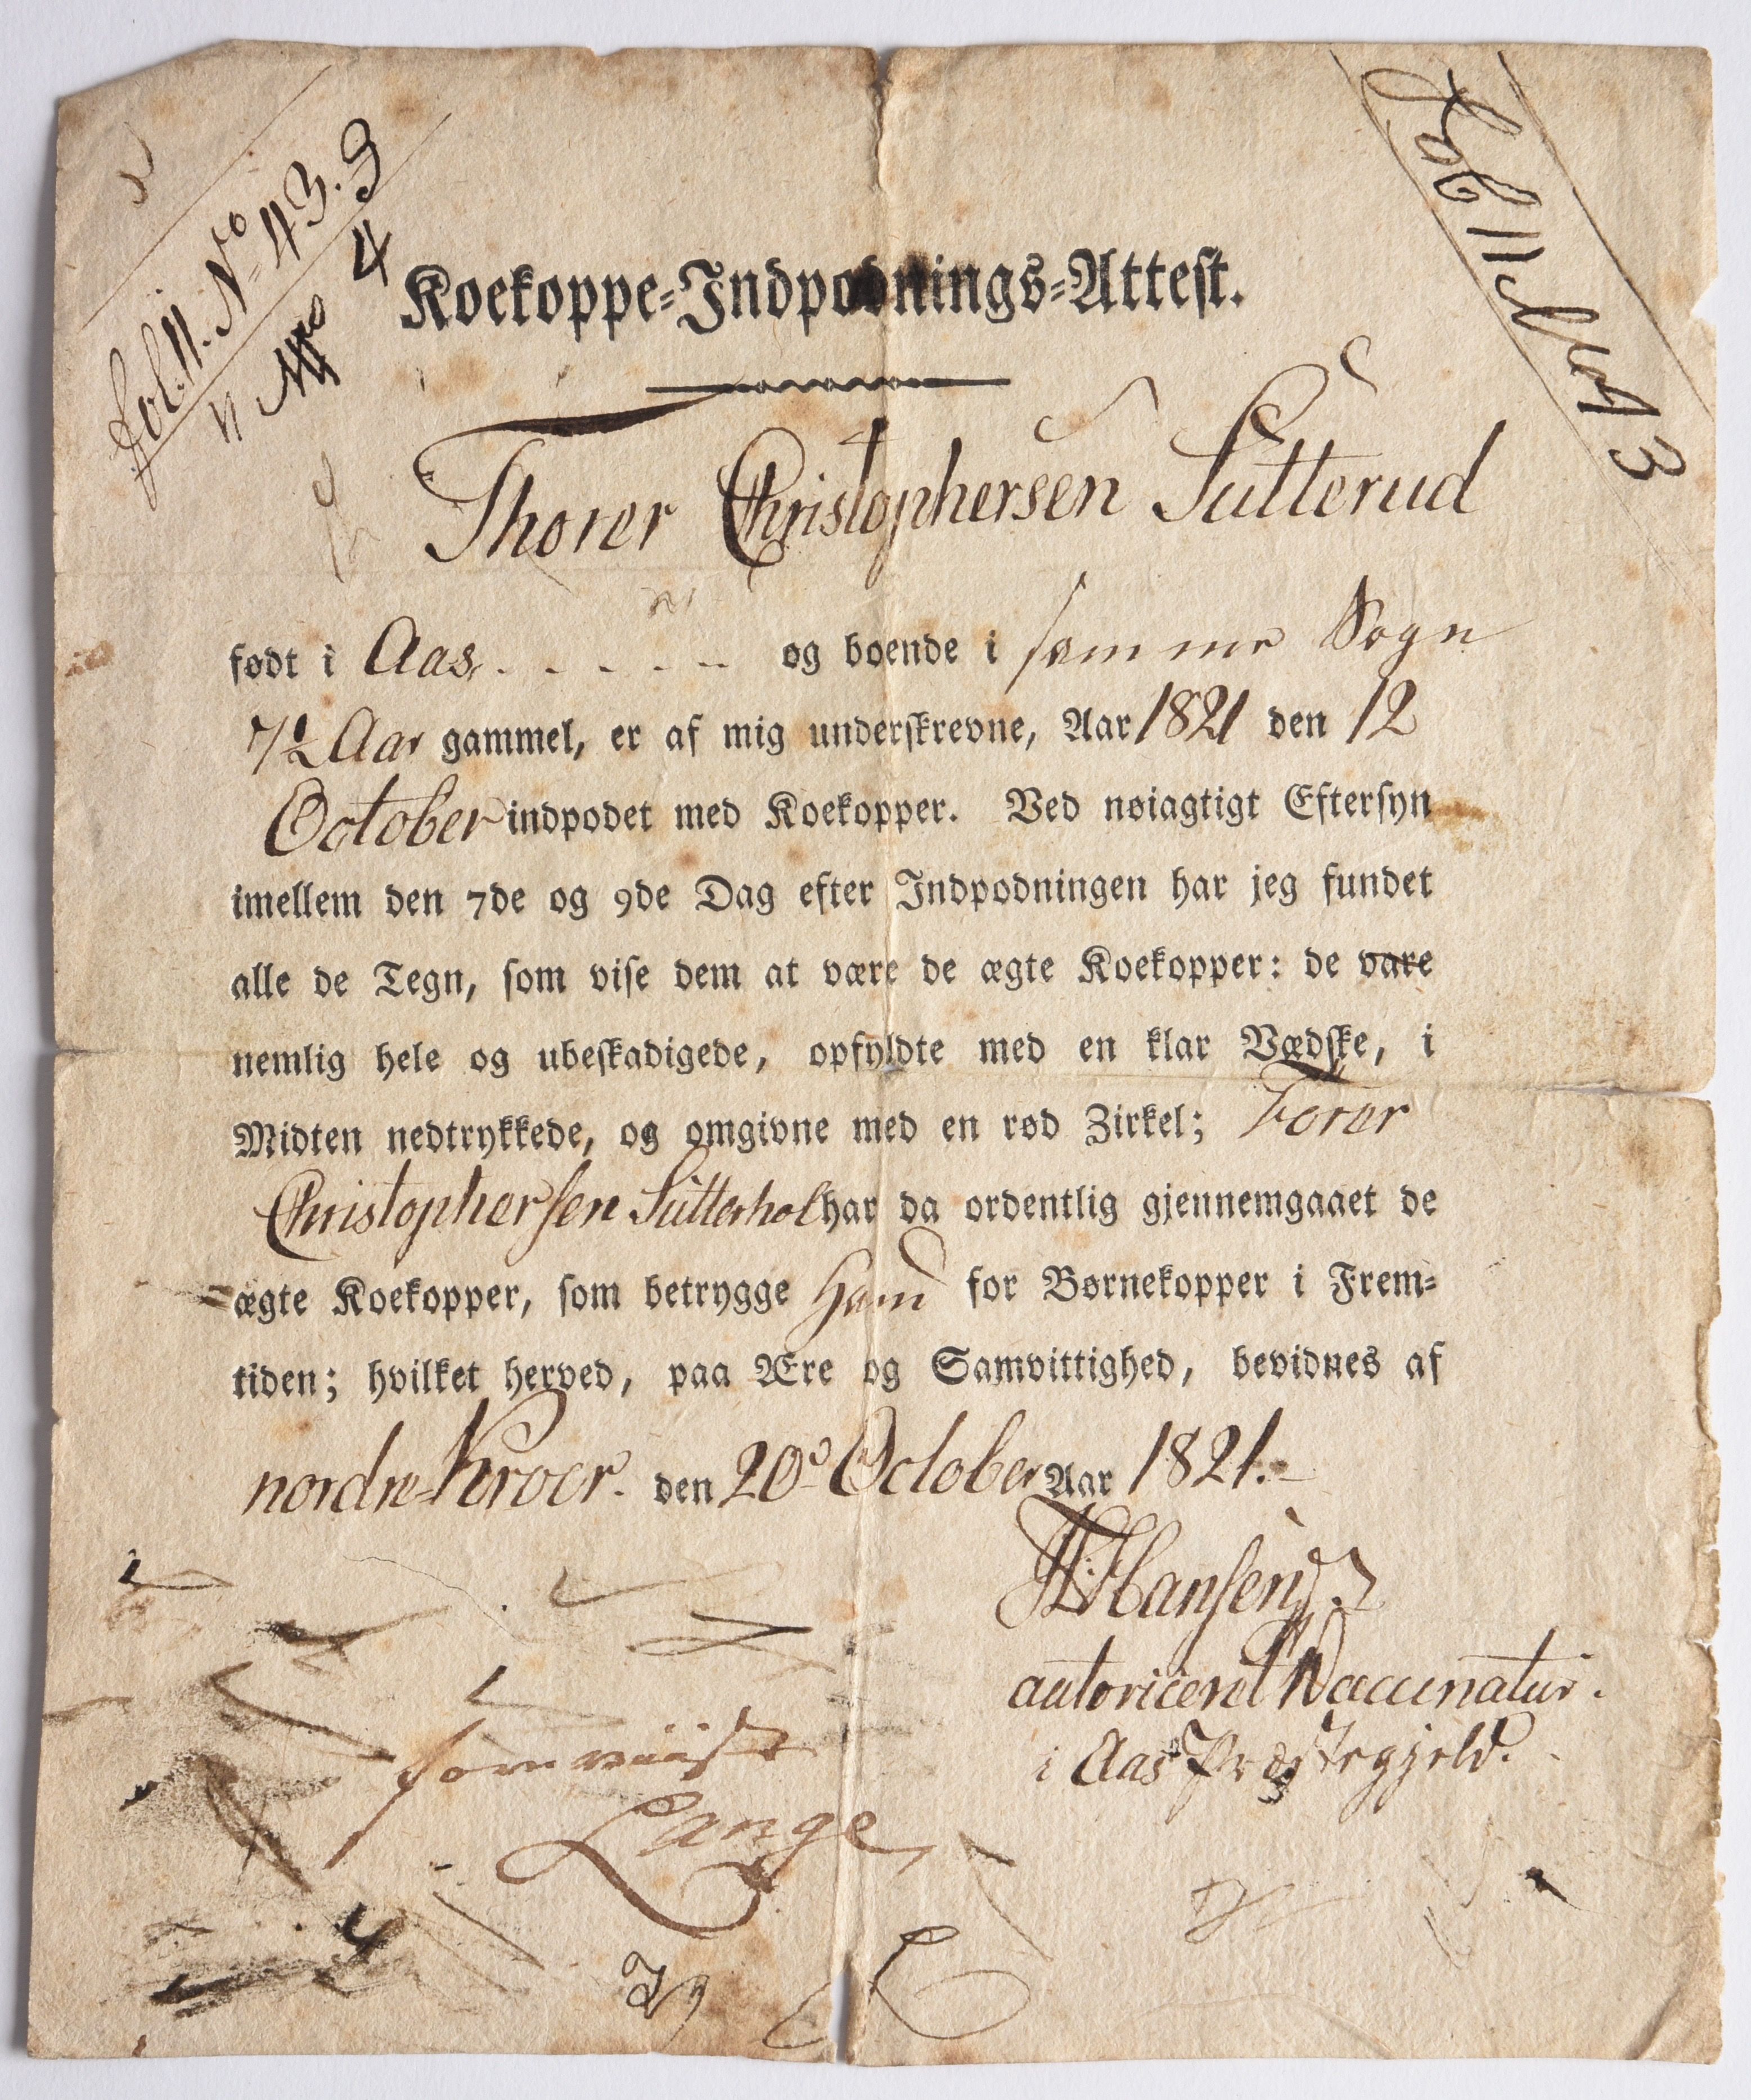 fol: 11. No 43. 3
11 No 4
Fol 11 No 43
Koekoppe-Indpodnings-Attest.
Thorer Christophersen Sutterud
født i Aas. - - - - - og boende i samme Sogn
7½ Aar gammel, er af mig underskrevne, Aar 1821 den 12
October indpodet med Koekopper. Ved nøiagtigt Eftersyn
imellem den 7de og 9de Dag efter Indpodningen har jeg fundet
alle de Tegn, som vise dem at være de ægte Koekopper: de vare
nemlig hele og ubeskadigede, opfyldte med en klar Vædske, i
Midten nedtrykkede, og omgivne med en rød Zirkel; Torer
Christophersen Sutterhol har da ordentlig gjennemgaaet de
ægte Koekopper, som betrygge ham for Børnekopper i Frem-
tiden; hvilket herved, paa Ære og Samvittighed, bevidnes af
nordre Kroer. den 20de October Aar 1821.-
Hansen
autoriceret Vaccinatur.
i Aas Præstegjeld.
foreviist
Lange